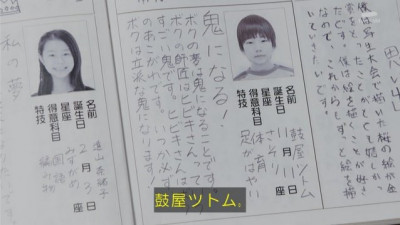 思い出
僕は写生大会で描いた桜の絵が金
賞をとったことが、とても嬉しか
ったです。僕は絵を描くことが好き
なので、これからも、ずっと絵を描
いていきたいです。
名前 鼓屋ツトム
誕生日 11月11日
星座 さそり座
得意科目 体育
特技 足がはやい
鬼になる！
ボクの夢は鬼になることです。
ボクの師匠はヒビキさんといって、
すごい鬼です。
のあこがれです。いつか必ず
ボクは立派な鬼になります！
名前 遠山
誕生日 2月3日
星座 みずがめ座
得意科目 国語
特技 編み物
私の夢
鼓屋ツトム。